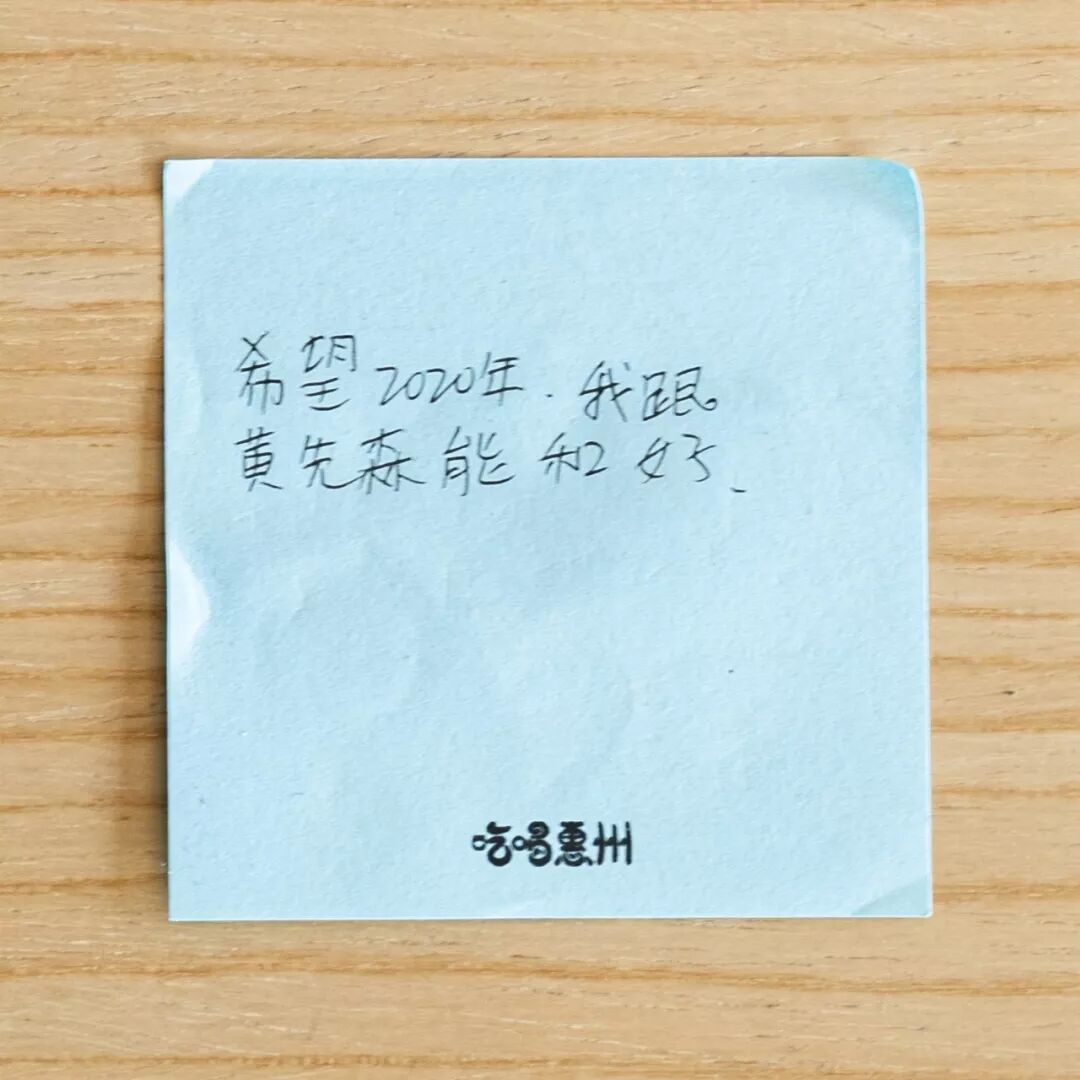 希望2020年.我跟
黄先森能和好.
吃喝惠州